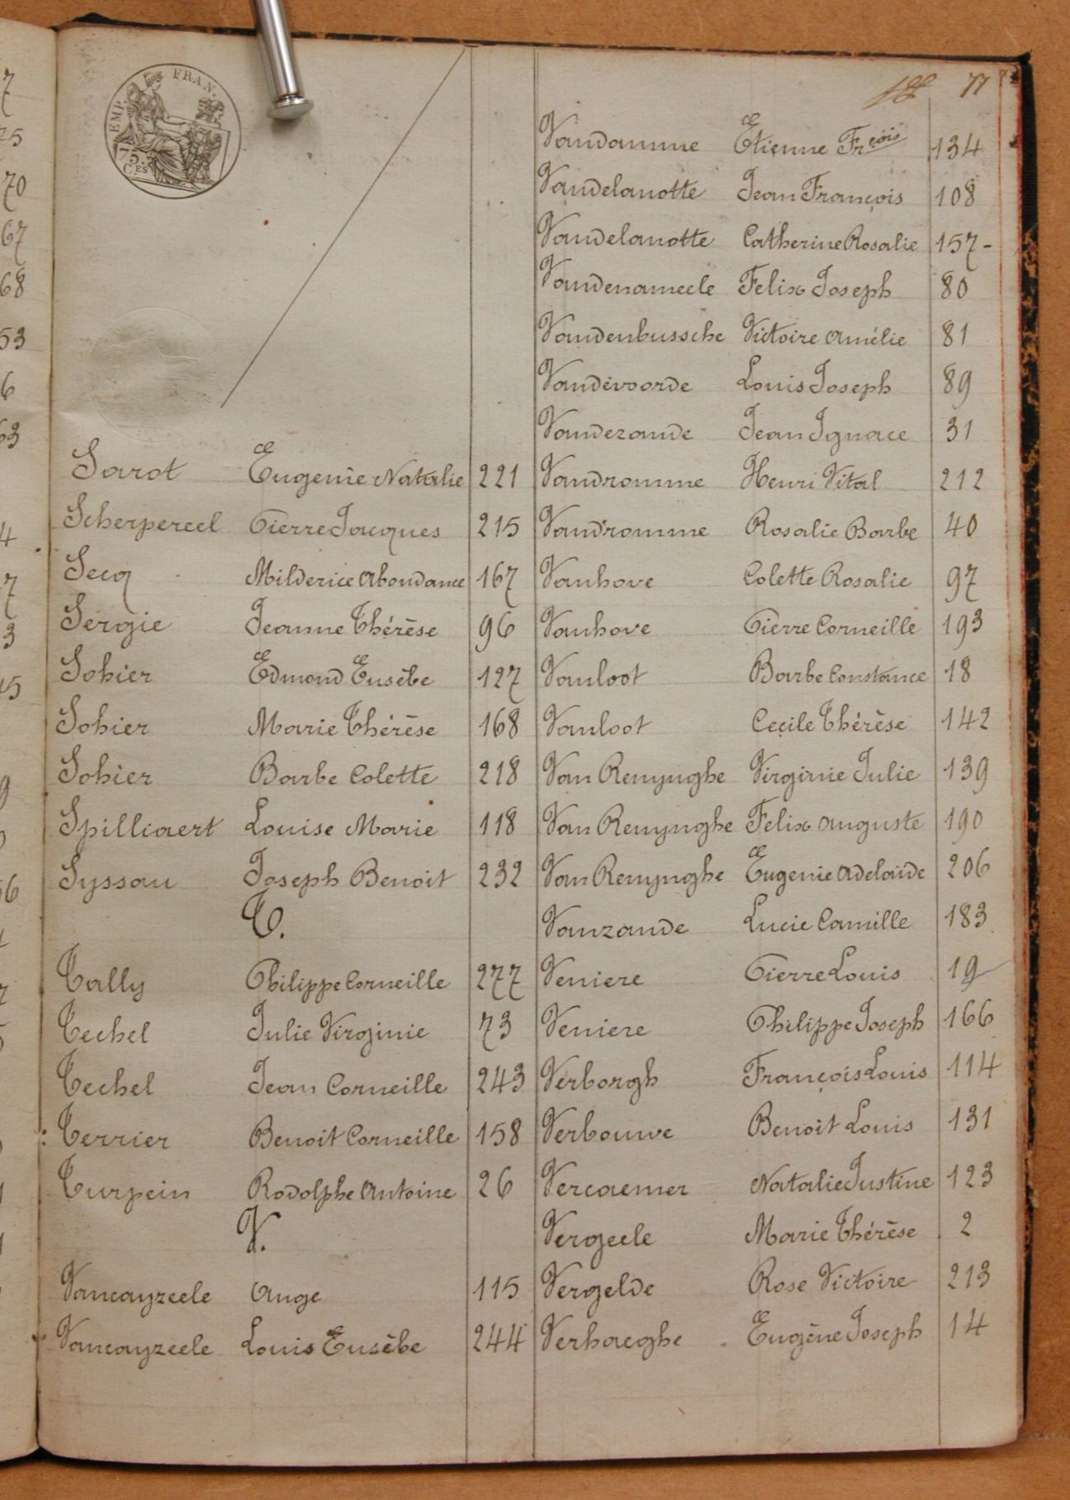 EMP. FRAN.
75
CES
77
Sarot Eugenie Natalie 221
Scherpereel Pierre Jacques 215
Secq Milderice Abondance 167
Sergie Jeanne Thérèse 96
Sohier Edmond Eusèbe 127
Sohier Marie Thérèse 168
Sohier Barbe Colette 218
Spilliaert Louise Marie 118
Syssau Joseph Benoit 232
T.
Tally Philippe Corneille 277
Techel Julie Virginie 73
Techel Jean Corneille 243
Terrier Benoit Corneille 158
Turpein Rodolphe Antoine 26
V.
Vancayzeele Ange 115
Vancayzeele Louis Eusèbe 244
Vandamme Etienne Frçois 134
Vandelanotte Jean François 108
Vandelanotte Catherine Rosalie 157-
Vandenameele Felix Joseph 80
Vandenbussche Victoire Amélie 81
Vandevoorde Louis Joseph 89
Vandezande Jean Ignace 31
Vandromme Henri Vital 212
Vandromme Rosalie Barbe 40
Vanhove Colette Rosalie 97
Vanhove Pierre Corneille 193
Vanloot Barbe Constance 18
Vanloot Cecile Thérèse 142
Van Renynghe Virginie Julie 139
Van Renynghe Felix Auguste 190
Van Renynghe Eugenie Adelaïde 206
Vanzande Lucie Camille 183
Veniere Pierre Louis 19
Veniere Philippe Joseph 166
Verborgh François Louis 114
Verbouwe Benoit Louis 131
Vercaemer Natalie Justine 123
Vergeele Marie Thérèse 2
Vergelde Rose Victoire 213
Verhaeghe Eugène Joseph 14